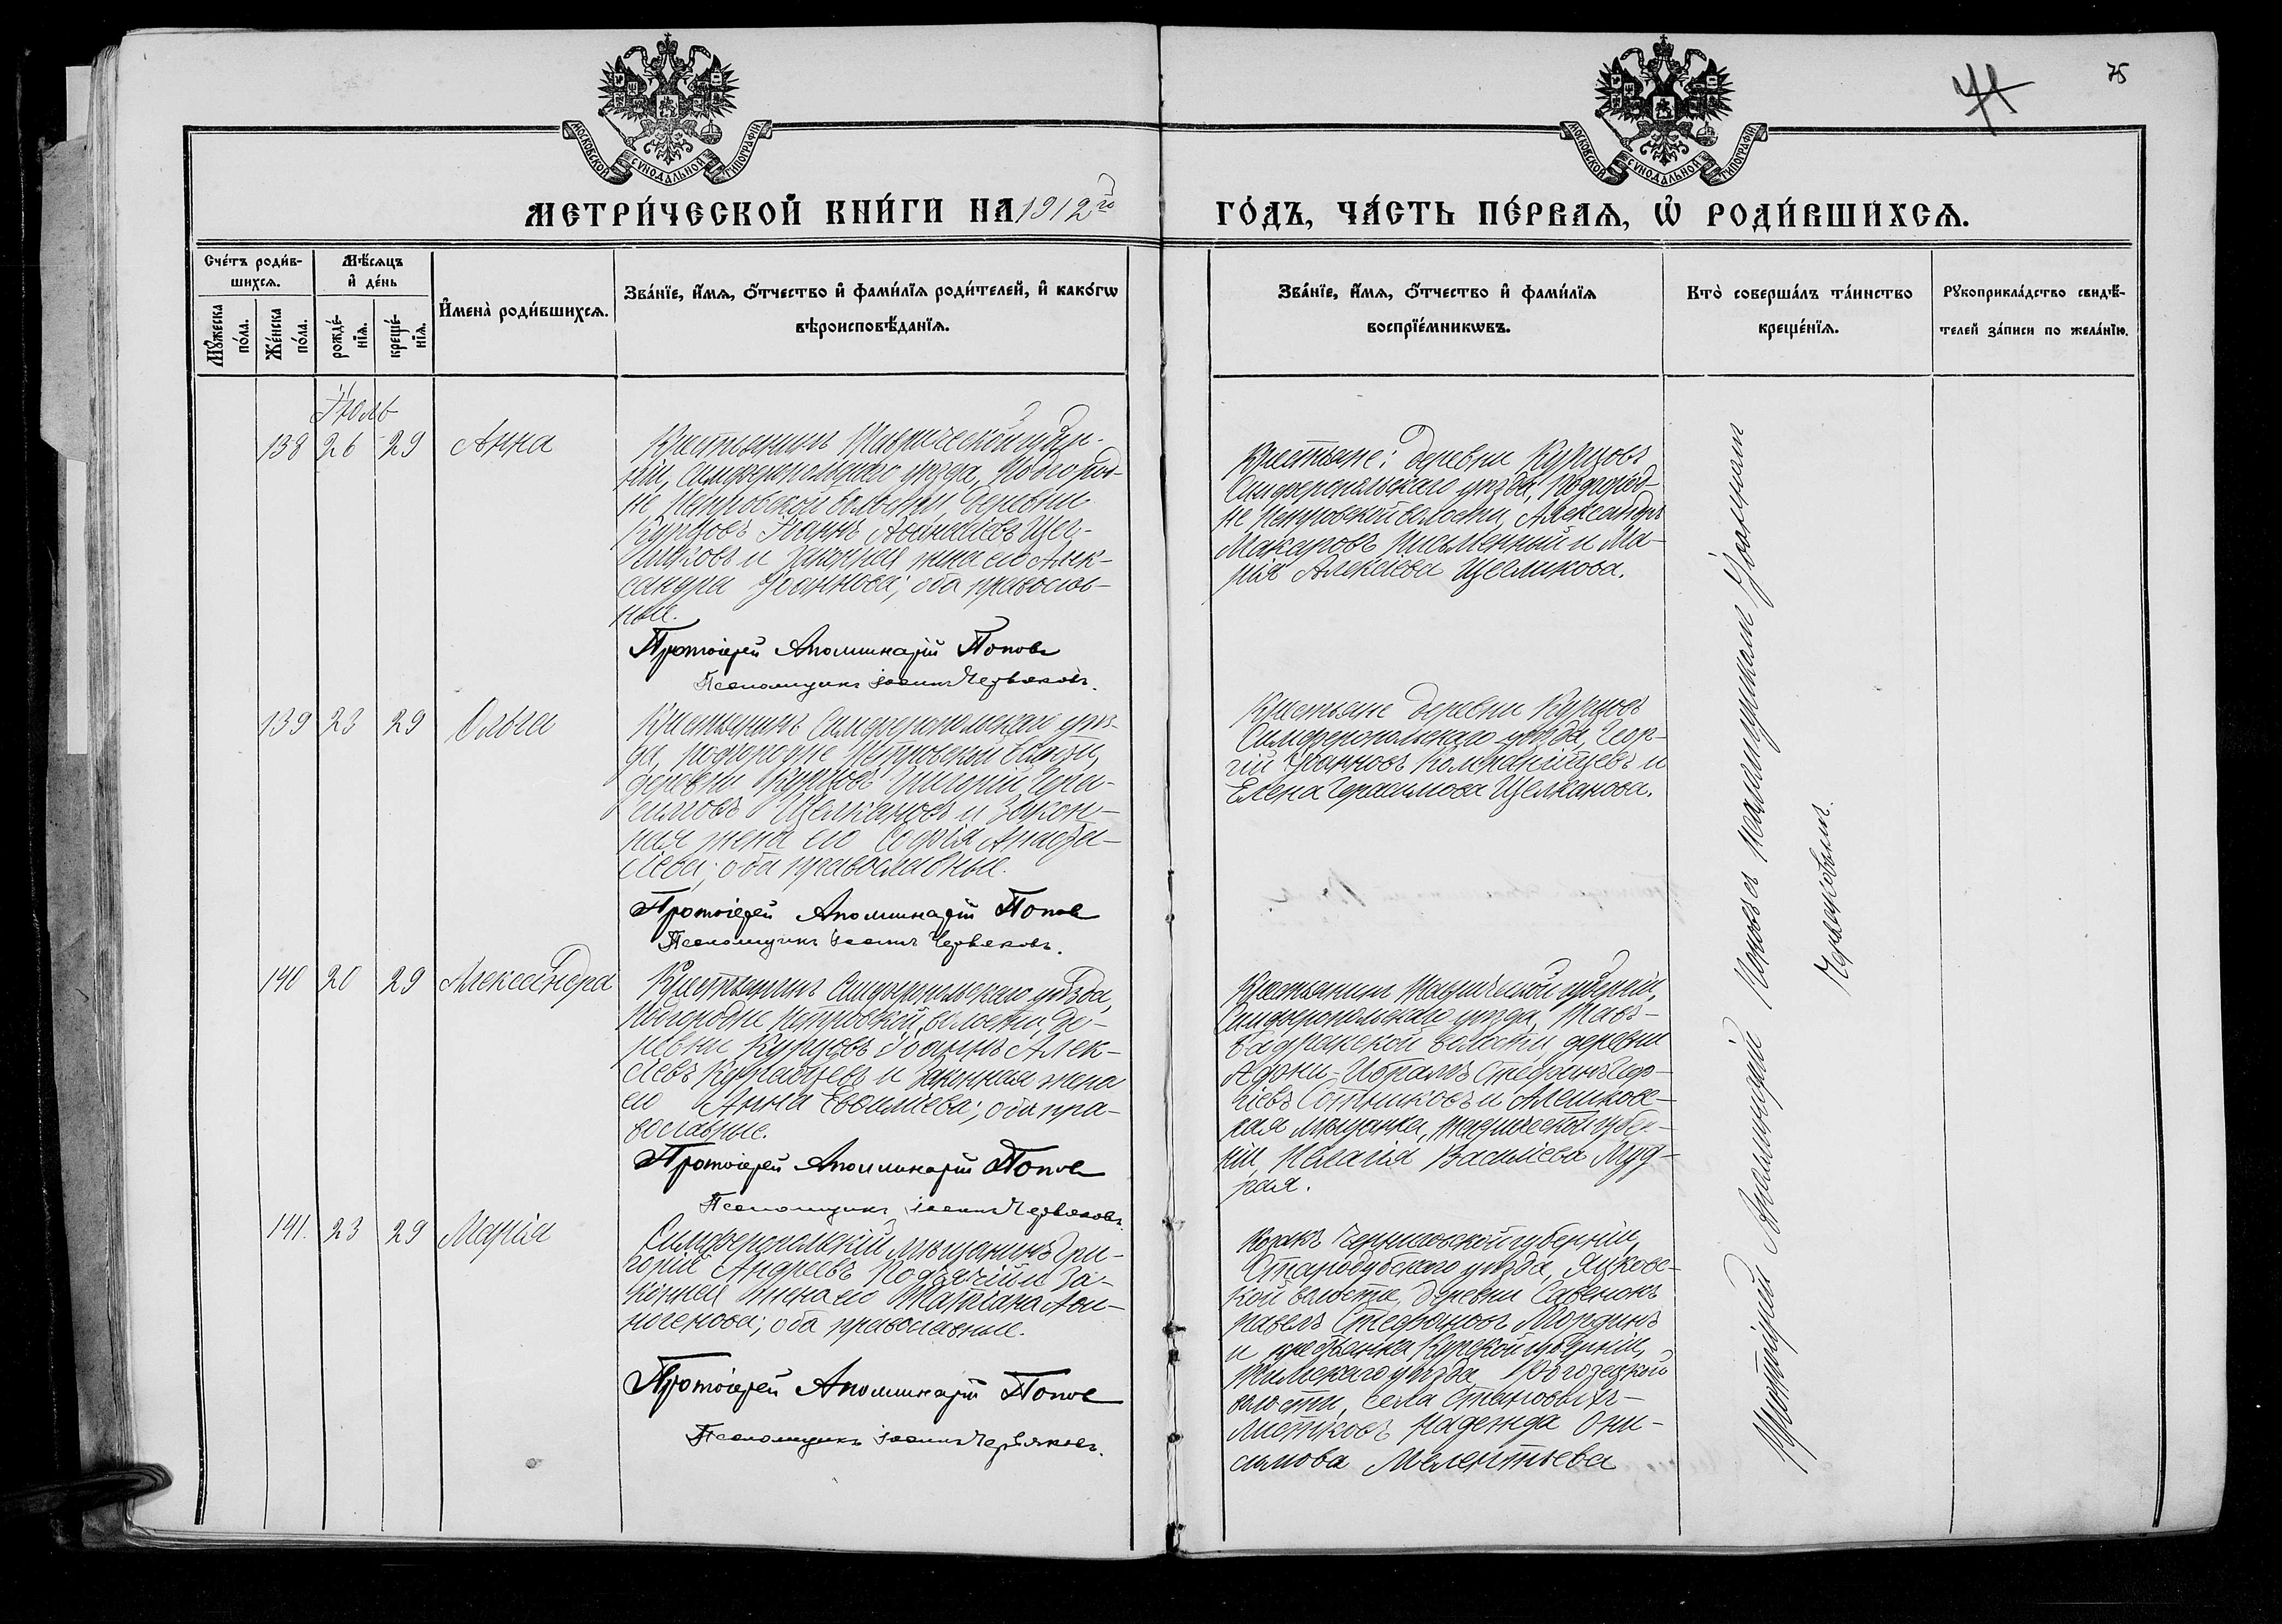 75
МОСКОВСКОЙ СѴНОДАЛЬНОЙ ТИПОГРАФІИ
МОСКОВСКОЙ СѴНОДАЛЬНОЙ ТИПОГРАФІИ
МЕТРИ́ЧЕСКОЙ КНИ́ГИ НА 1912го ГО́ДЪ, ЧА́СТЬ ПЕ́РВАѦ, Ѡ РОДИ́ВШИХСѦ.
Сче́тъ роди́в-
шихсѧ.
Мꙋжеска по́ла.
Же́нска по́ла.
Мѣ́сѧцъ
и҆ де́нь
рожде́-
нїѧ.
креще́-
нїѧ.
И҆мена̀ роди́вшихсѧ.
Зва́нїе, и҆́мѧ, ѻ҆́тчество и҆ фами́лїѧ роди́телей, и҆ како́гѡ
вѣроисповѣ́данїѧ.
Зва́нїе, и҆́мѧ, ѻ҆́тчество и҆ фами́лїѧ
воспрїе́мникѡвъ.
Кто̀ соверша́лъ та́инство
креще́нїѧ.
Рꙋкоприкла́дство свидѣ́-
телей за́писи по жела́нїю.
Іюль
138 26 29 Анна
Крестьянинъ Таврической губер-
ніи, Симферопольскаго уѣзда, Подгород-
не Петровской волости, деревни
Курцовъ Іоаннъ Аѳанасіевъ
и законная жена его Алек-
сандра Іоаннова; оба православ-
ные.
Протоіерей Аполлинарій Поповъ
Псаломщикъ Іоаннъ Червяковъ.
Крестьяне: деревни Курцовъ
Симферопольскаго уѣзда, Подгород-
не Петровской волости, Александръ
Макаровъ Письменный и Ма-
рія Алексіева Щеликова.
139 23 29 Ольга
Крестьянинъ Симферопольскаго уѣз-
да, Подгородне Петровской волости,
деревни Курцовъ Григорій Гера-
симовъ Щелкановъ и закон-
ная жена его Софія
оба православные.
Протоіерей Аполлинарій Попов
Псаломщикъ Іоаннъ Червяковъ.
Крестьяне деревни Курцовъ
Симферопольскаго уѣзда, Геор-
гій Іоанновъ Компанійцевъ и
Елена Герасимова Щелканова.
140 20 29 Александра
Крестьянинъ Симферопольскаго уѣзда,
Подгородне Петровской волости, де-
ревни Курцовъ Іоаннъ Алек-
сіевъ и законная жена
его Анна оба пра-
вославные.
Протоіерей Аполлинарій Попов
Псаломщикъ Іоаннъ Червяковъ.
Крестьянинъ Таврической губерніи,
Симферопольскаго уѣзда,
волости деревни
Стефанъ Геор-
гіевъ Сотниковъ и Алешков-
ская мѣщанка, Таврической губер-
ніи, Пелагія Василіева Муд-
рая.
141. 23 29 Марія
Симферопольскій мѣщанинъ Гри-
горій Андреевъ Подъячій и за-
конная жена его Татіана
оба православные.
Протоіерей Аполлинарій Попов
Псаломщикъ Іоаннъ Червяковъ.
Козакъ Черниговской губерніи,
Стародубскаго уѣзда,
волости, деревни Савенокъ
Павелъ Стефановъ Мординъ
и крестьянка Курской губерніи,
Тимскаго уѣзда, Рогозецкой
волости, села
Надежда Они-
симова Мелентьева
Протоіерей Аполлинарій Поповъ съ псаломщикомъ Іоанномъ
Червяковымъ.